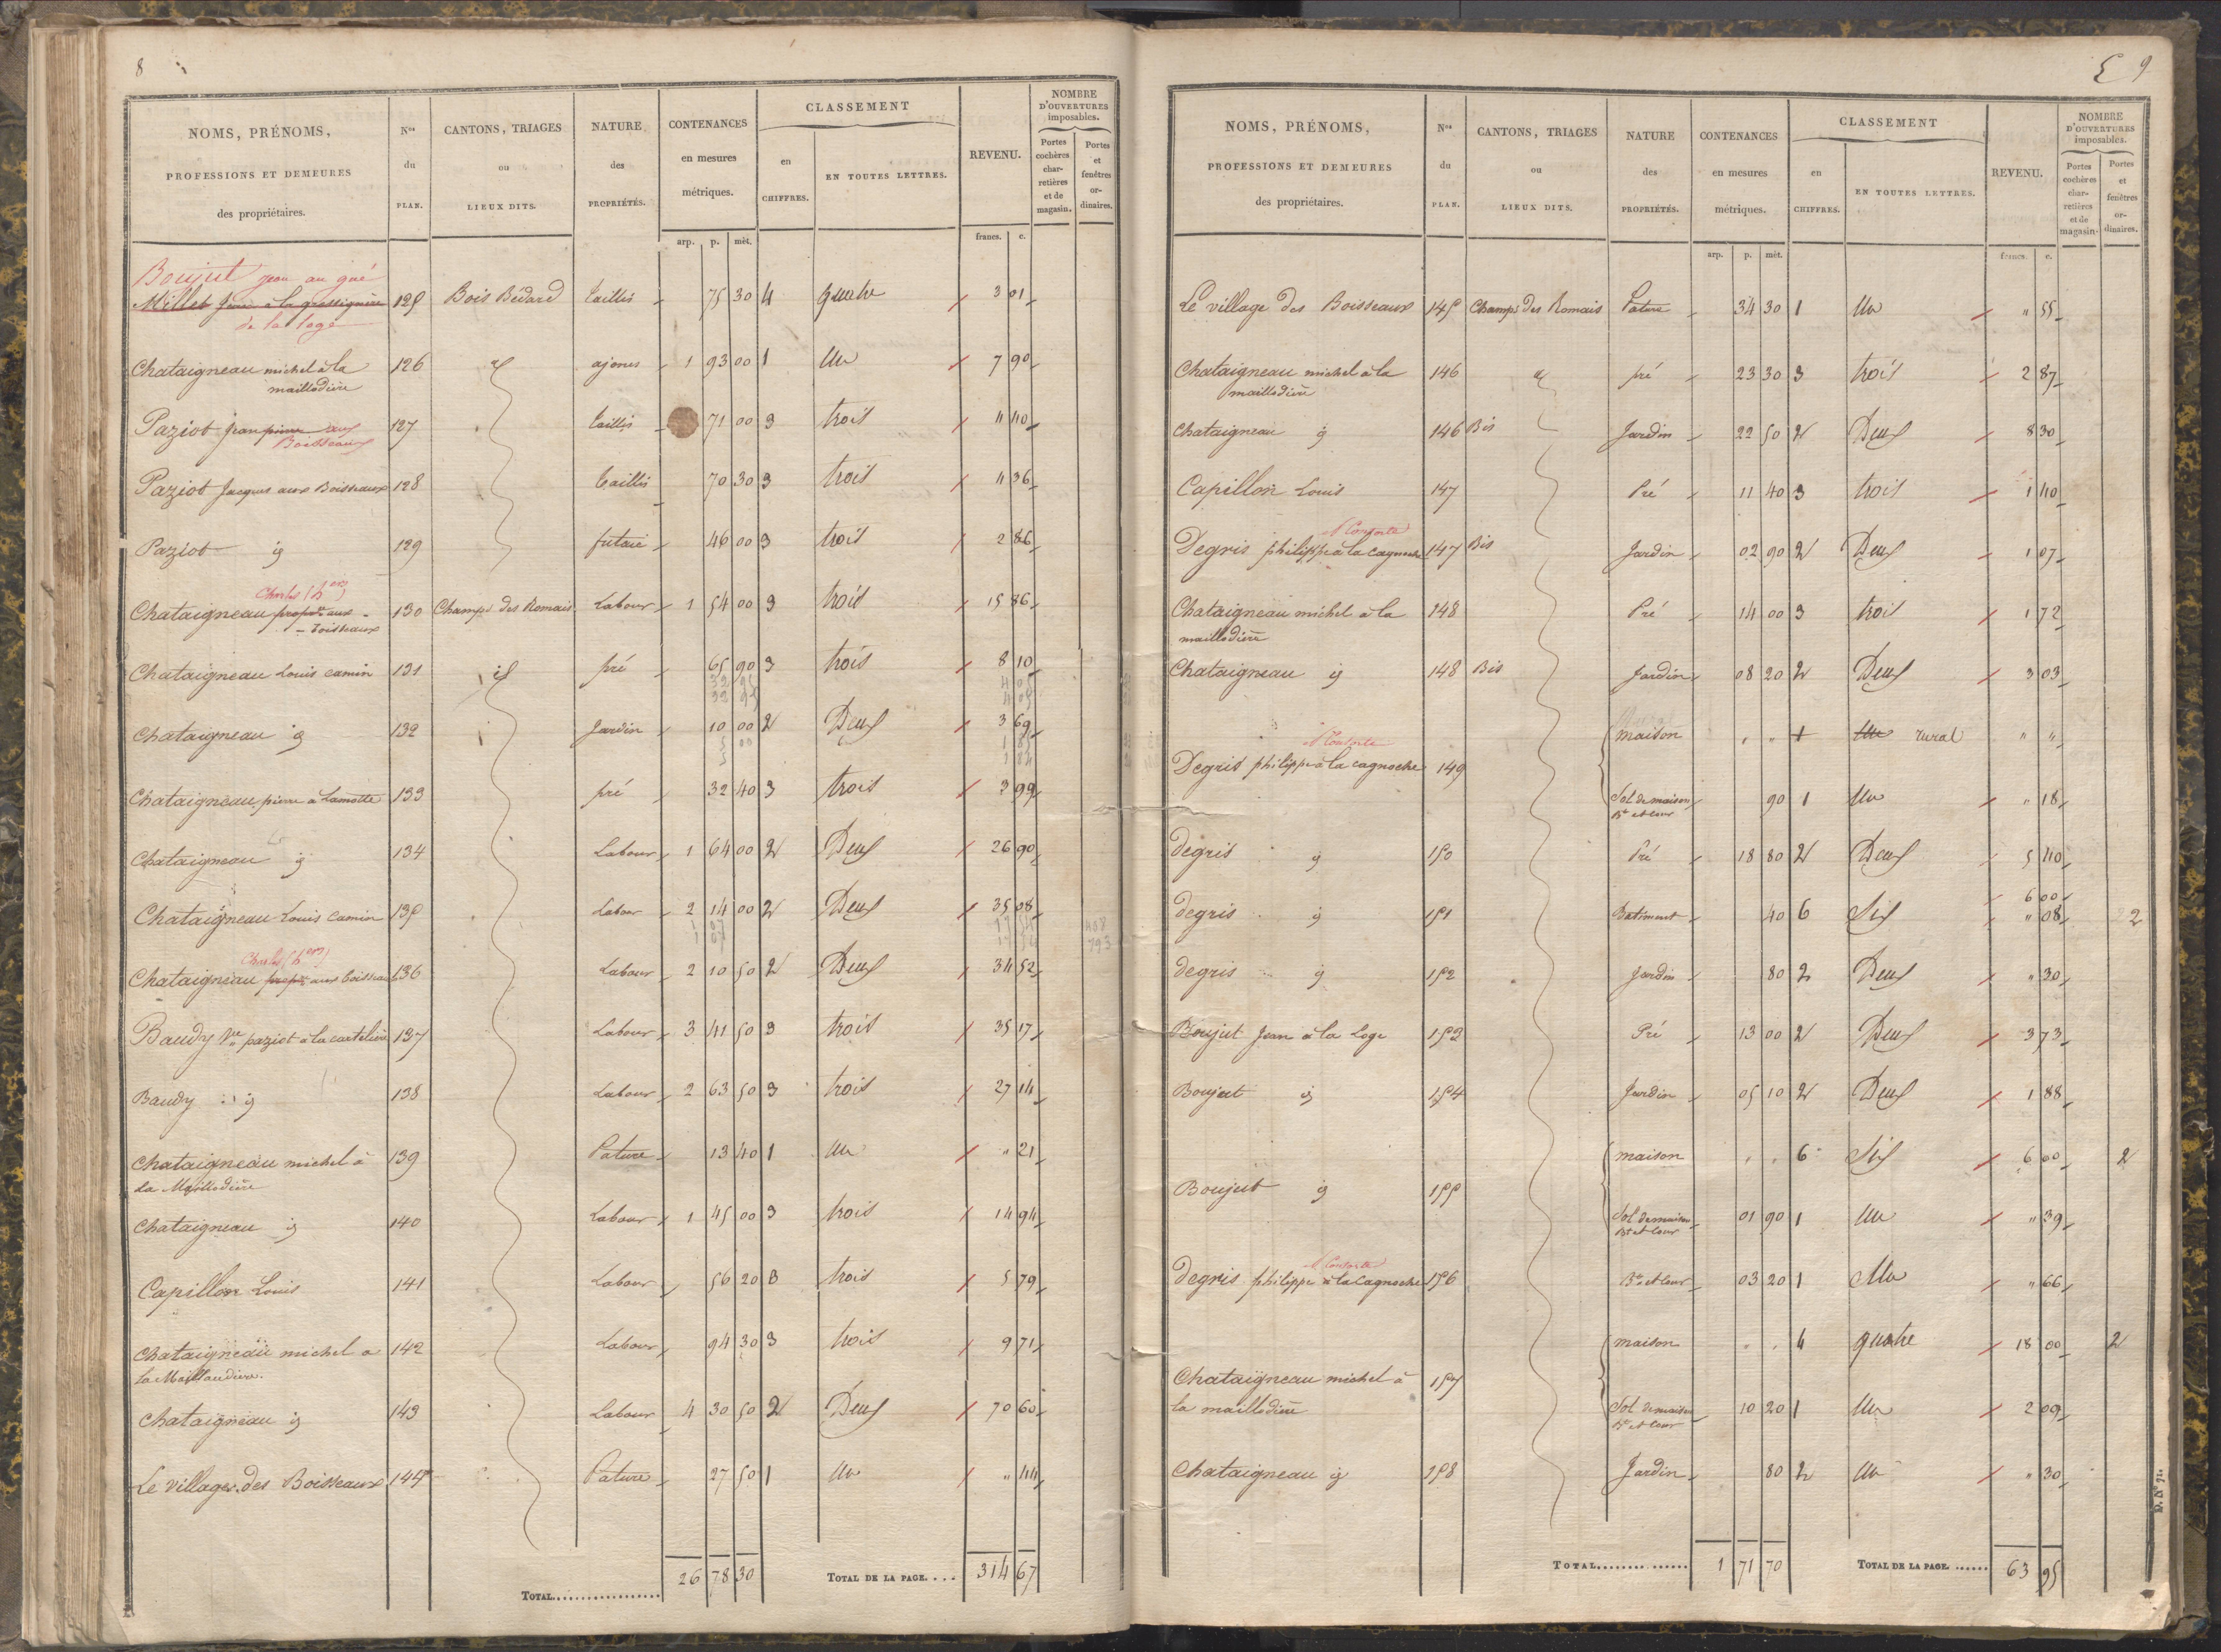 8
NOMS, PRÉNOMS, PROFESSIONS ET DEMEURES des propriétaires.
Nos du PLAN.
CANTONS, TRIAGES ou LIEUX DITS.
NATURE des PROPRIÉTÉS.
CONTENANCES en mesures métriques.
CLASSEMENT
en CHIFFRES.
EN TOUTES LETTRES.
REVENU.
NOMBRE D'OUVERTURES imposables.
Portes cochères charretières et de magasin.
Portes et fenêtres ordinaires.
arp. p. mèt. francs. c.
Boujut Jean au gué
Millet 125 Bois Bédard taillis 75 30 4 quatre 3 01
de la loge
Chataigneau michel à la 126 id ajoncs 1 93 00 1 Un 7 90
maillodière
Paziot jean pierre aux 127 taillis 71 00 3 trois 4 40
Boisseaux
Paziot Jacques aux Boisseaux 128 taillis 70 30 3 trois 4 36
Paziot id 129 futaie 46 00 3 trois 2 86
Charles (h^ers)
Chataigneau propre aux 130 Champs des Romais Labour 1 54 00 3 trois 15 86
Boisseaux
Chataigneau Louis camin 131 id pré 65 90 3 trois 8 10
32 95 4 05
32 95 4 05
Chataigneau id 132 Jardin 10 00 2 Deux 3 69
5 00
Chataigneau pierre à Lamotte 133 pré 32 40 3 trois 3 99
Chataigneau id 134 Labour 1 64 00 2 Deux 26 90
Chataigneau Louis Camin 135 Labour 2 14 00 2 Deux 35 08
1 07
1 07
Charles (h^ers)
Chataigneau propre aux boisseaux 136 Labour 2 10 50 2 Deux 34 52
Baudy Ve paziot à la cartelière 137 Labour 3 41 50 3 trois 35 17
Baudy id 138 Labour 2 63 50 3 trois 27 14
Chataigneau michel à 139 Pature 13 40 1 Un " 21
La Maillodière
Chataigneau id 140 Labour 1 45 00 3 trois 14 94
Capillon Louis 141 Labour 56 20 3 trois 5 79
Chataigneau michel a 142 Labour 94 30 3 trois 9 71
la Maillaudiere.
Chataigneau id 143 Labour 4 30 50 2 Deux 70 60
Le village des Boisseaux 144 Pature 27 50 1 Un " 44
TOTAL 26 78 30 TOTAL DE LA PAGE.... 314 67
E 9
NOMS, PRÉNOMS, PROFESSIONS ET DEMEURES des propriétaires.
Nos du PLAN.
CANTONS, TRIAGES ou LIEUX DITS.
NATURE des PROPRIÉTÉS.
CONTENANCES en mesures métriques.
CLASSEMENT
en CHIFFRES.
EN TOUTES LETTRES.
REVENU.
NOMBRE D'OUVERTURES imposables.
Portes cochères charretières et de magasin.
Portes et fenêtres ordinaires.
arp. p. mèt. francs. c.
Le village des Boisseaux 145 Champs des Romais Pature 34 30 1 Un " 55
Chataigneau michel à la 146 id pré 23 30 3 trois 2 87
maillodière
Chataigneau id 146 Bis Jardin 22 50 2 Deux 8 30
Capillon Louis 147 Pré 11 40 3 trois 1 40
Degris philippe à la cagnoche 147 Bis Jardin 02 90 2 Deux 1 07
Chataigneau michel à la 148 Pré 14 00 3 trois 1 72
maillodière
Chataigneau id 148 Bis Jardin 08 20 2 Deux 3 03
maison " " 1 Un rural " "
Degris philippe à la cagnoche 149
Sol de maison 90 1 Un " 18
Bt et cour
degris id 150 Pré 18 80 2 Deux 5 40
6 00
degris id 151 Batiment 40 6 Six " 08 2
degris id 152 Jardin 80 2 Deux " 30
Boujut Jean à la Loge 153 Pré 13 00 2 Deux 3 73
Boujut id 154 Jardin 05 10 2 Deux 1 88
maison " " 6 Six 6 00 2
Boujut id 155
Sol de maison 01 90 1 Un " 39
Bt et cour
degris philippe à la Cagnoche 156 Bt et cour 03 20 1 Un " 66
maison " " 4 quatre 18 00 2
Chataigneau michel à 157
la maillodière Sol de maison 10 20 1 Un 2 09
Bt et cour
Chataigneau id 158 Jardin 80 2 Un " 30
TOTAL 1 71 70 TOTAL DE LA PAGE 63 95
D. N° 21.